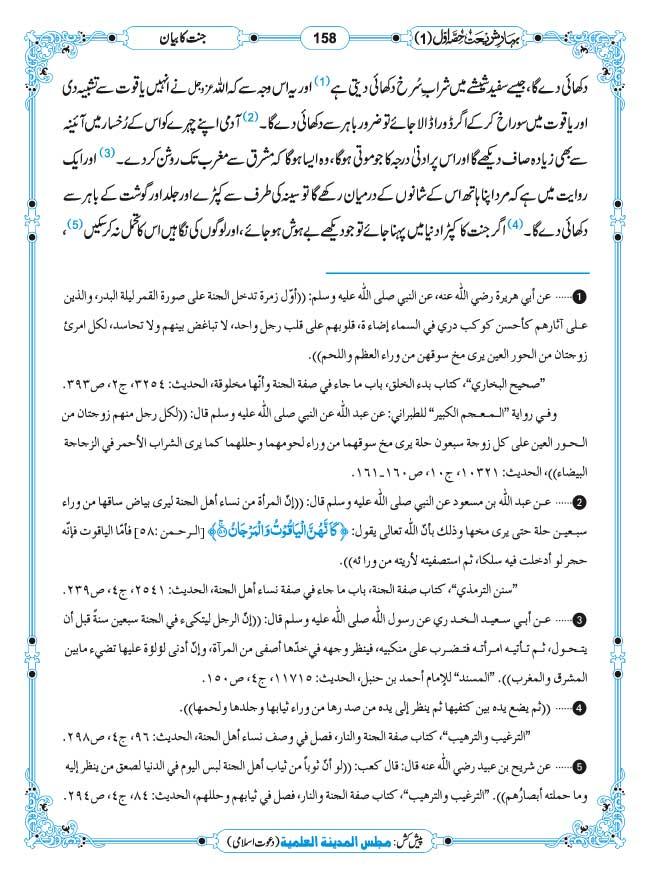 بہارِ شریعت حصّہ اوّل (1)
158
جنت کا بیان
دکھائی دے گا، جیسے سفید شیشے میں شرابِ سُرخ دکھائی دیتی ہے (1) اور یہ اس وجہ سے کہ اللہ عزوجل نے انہیں یاقوت سے تشبیہ دی
اور یاقوت میں سوراخ کرکے اگر ڈورا ڈالا جائے تو ضرور باہر سے دکھائی دے گا۔ (2) آدمی اپنے چہرے کو اس کے رُخسار میں آئینہ
سے بھی زیادہ صاف دیکھے گا اور اس پر ادنیٰ درجہ کا جو موتی ہوگا، وہ ایسا ہوگا کہ مشرق سے مغرب تک روشن کر دے۔ (3) اور ایک
روایت میں ہے کہ مرد اپنا ہاتھ اس کے شانوں کے درمیان رکھے گا تو سینہ کی طرف سے کپڑے اور جلد اور گوشت کے باہر سے
دکھائی دے گا۔ (4) اگر جنت کا کپڑا دنیا میں پہنا جائے تو جو دیکھے بے ہوش ہو جائے، اور لوگوں کی نگاہیں اس کا تحمل نہ کرسکیں (5)،
1 ...... عن أبي هريرة رضي الله عنه، عن النبي صلى الله عليه وسلم: ((أوّل زمرة تدخل الجنة على صورة القمر ليلة البدر، والذين
على آثارهم كأحسن كوكب دري في السماء إضاءة، قلوبهم على قلب رجل واحد، لا تباغض بينهم ولا تحاسد، لكل امرئ
زوجتان من الحور العين يرى مخ سوقهن من وراء العظم واللحم)).
”صحيح البخاري“، كتاب بدء الخلق، باب ما جاء في صفة الجنة وأنّها مخلوقة، الحديث: ٣٢٥٤، ج٢، ص٣٩٣.
وفي رواية ”المعجم الكبير“ للطبراني: عن عبد الله عن النبي صلى الله عليه وسلم قال: ((لكل رجل منهم زوجتان من
الحور العين على كل زوجة سبعون حلة يرى مخ سوقهما من وراء لحومهما وحللهما كما يرى الشراب الأحمر في الزجاجة
البيضاء))، الحديث: ١٠٣٢١، ج١٠، ص١٦٠-١٦١.
2 ...... عن عبد الله بن مسعود عن النبي صلى الله عليه وسلم قال: ((إنّ المرأة من نساء أهل الجنة ليرى بياض ساقها من وراء
سبعين حلة حتى يرى مخها وذلك بأنّ الله تعالى يقول: ﴿كَأَنَّهُنَّ الْيَاقُوْتُ وَالْمَرْجَانُ﴾ [الرحمن :٥٨] فأمّا الياقوت فإنّه
حجر لو أدخلت فيه سلكا، ثم استصفيته لأريته من ورائه)).
”سنن الترمذي“، كتاب صفة الجنة، باب ما جاء في صفة نساء أهل الجنة، الحديث: ٢٥٤١، ج٤، ص٢٣٩.
3 ...... عن أبي سعيد الخدري عن رسول الله صلى الله عليه وسلم قال: ((إنّ الرجل ليتكىء في الجنة سبعين سنةً قبل أن
يتحول، ثم تأتيه امرأته فتضرب على منكبيه، فينظر وجهه في خدّها أصفى من المرآة، وإنّ أدنى لؤلؤة عليها تضيء ما بين
المشرق والمغرب)). ”المسند“ للإمام أحمد بن حنبل، الحديث: ١١٧١٥، ج٤، ص١٥٠.
4 ...... ((ثم يضع يده بين كتفيها ثم ينظر إلى يده من صدرها من وراء ثيابها وجلدها ولحمها)).
”الترغيب والترهيب“، كتاب صفة الجنة والنار، فصل في وصف نساء أهل الجنة، الحديث: ٩٦، ج٤، ص٢٩٨.
5 ...... عن شريح بن عبيد رضي الله عنه قال: قال كعب: ((لو أنّ ثوباً من ثياب أهل الجنة لبس اليوم في الدنيا لصعق من ينظر إليه
وما حملته أبصارُهم)). ”الترغيب والترهيب“، كتاب صفة الجنة والنار، فصل في ثيابهم وحللهم، الحديث: ٨٤، ج٤، ص٢٩٤.
پیش کش: مجلس المدینة العلمیة (دعوت اسلامی)